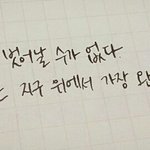 벗어날 수가 없다.
지구 위에서 가장